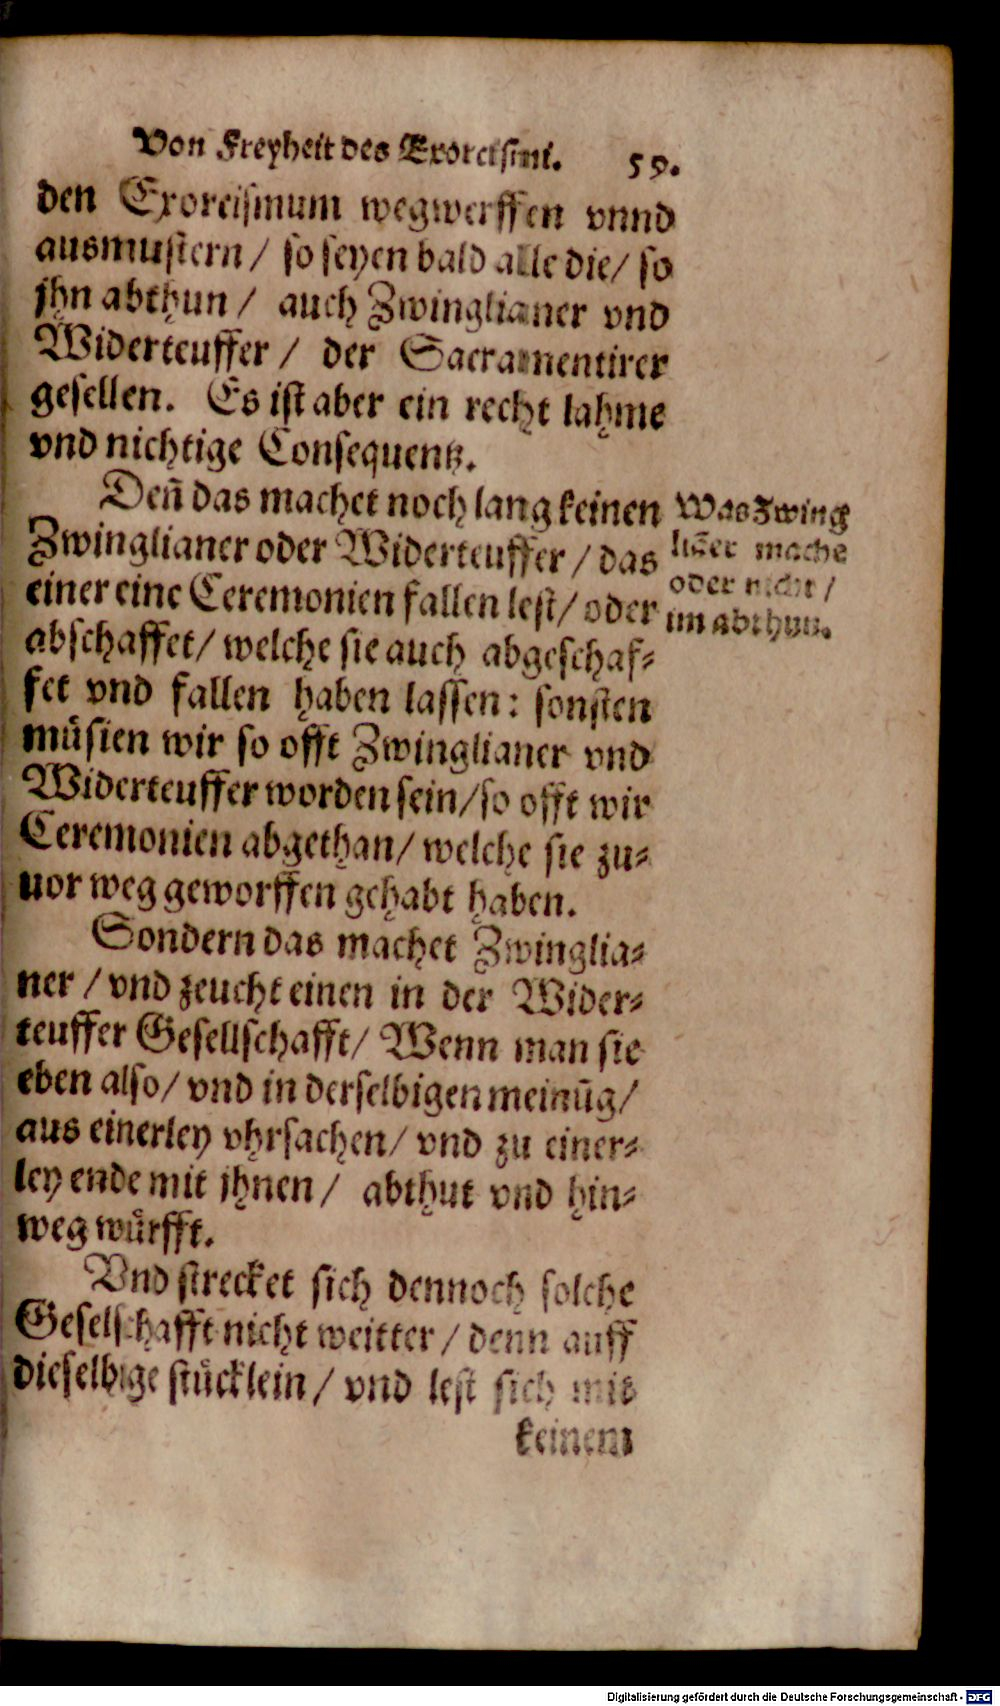 Von Freyheit des Exorcismi. 59.
den Exorcismum wegwerffen vnnd
ausmustern / so seyen bald alle die / so
jhn abthun / auch Zwinglianer vnd
Widerteuffer / der Sacramentirer
gesellen. Es ist aber ein recht lahme
vnd nichtige Consequentz.
Deñ das machet noch lang keinen
Zwinglianer oder Widerteuffer / das
einer eine Ceremonien fallen lest / oder
abschaffet / welche sie auch abgeschaf⸗
fet vnd fallen haben lassen: sonsten
müsten wir so offt Zwinglianer vnd
Widerteuffer worden sein / so offt wir
Ceremonien abgethan / welche sie zu⸗
uor weg geworffen gehabt haben.
Was Zwing
liãer mache
oder nicht /
im abthun.
Sondern das machet Zwinglia⸗
ner / vnd zeucht einen in der Wider⸗
teuffer Gesellschafft / Wenn man sie
eben also / vnd in derselbigen meinũg /
aus einerley vhrsachen / vnd zu einer⸗
ley ende mit jhnen / abthut vnd hin⸗
weg würfft.
Vnd strecket sich dennoch solche
Geselschafft nicht weitter / denn auff
dieselbige stücklein / vnd lest sich mit
keinem
Digitalisierung gefördert durch die Deutsche Forschungsgemeinschaft - DFG